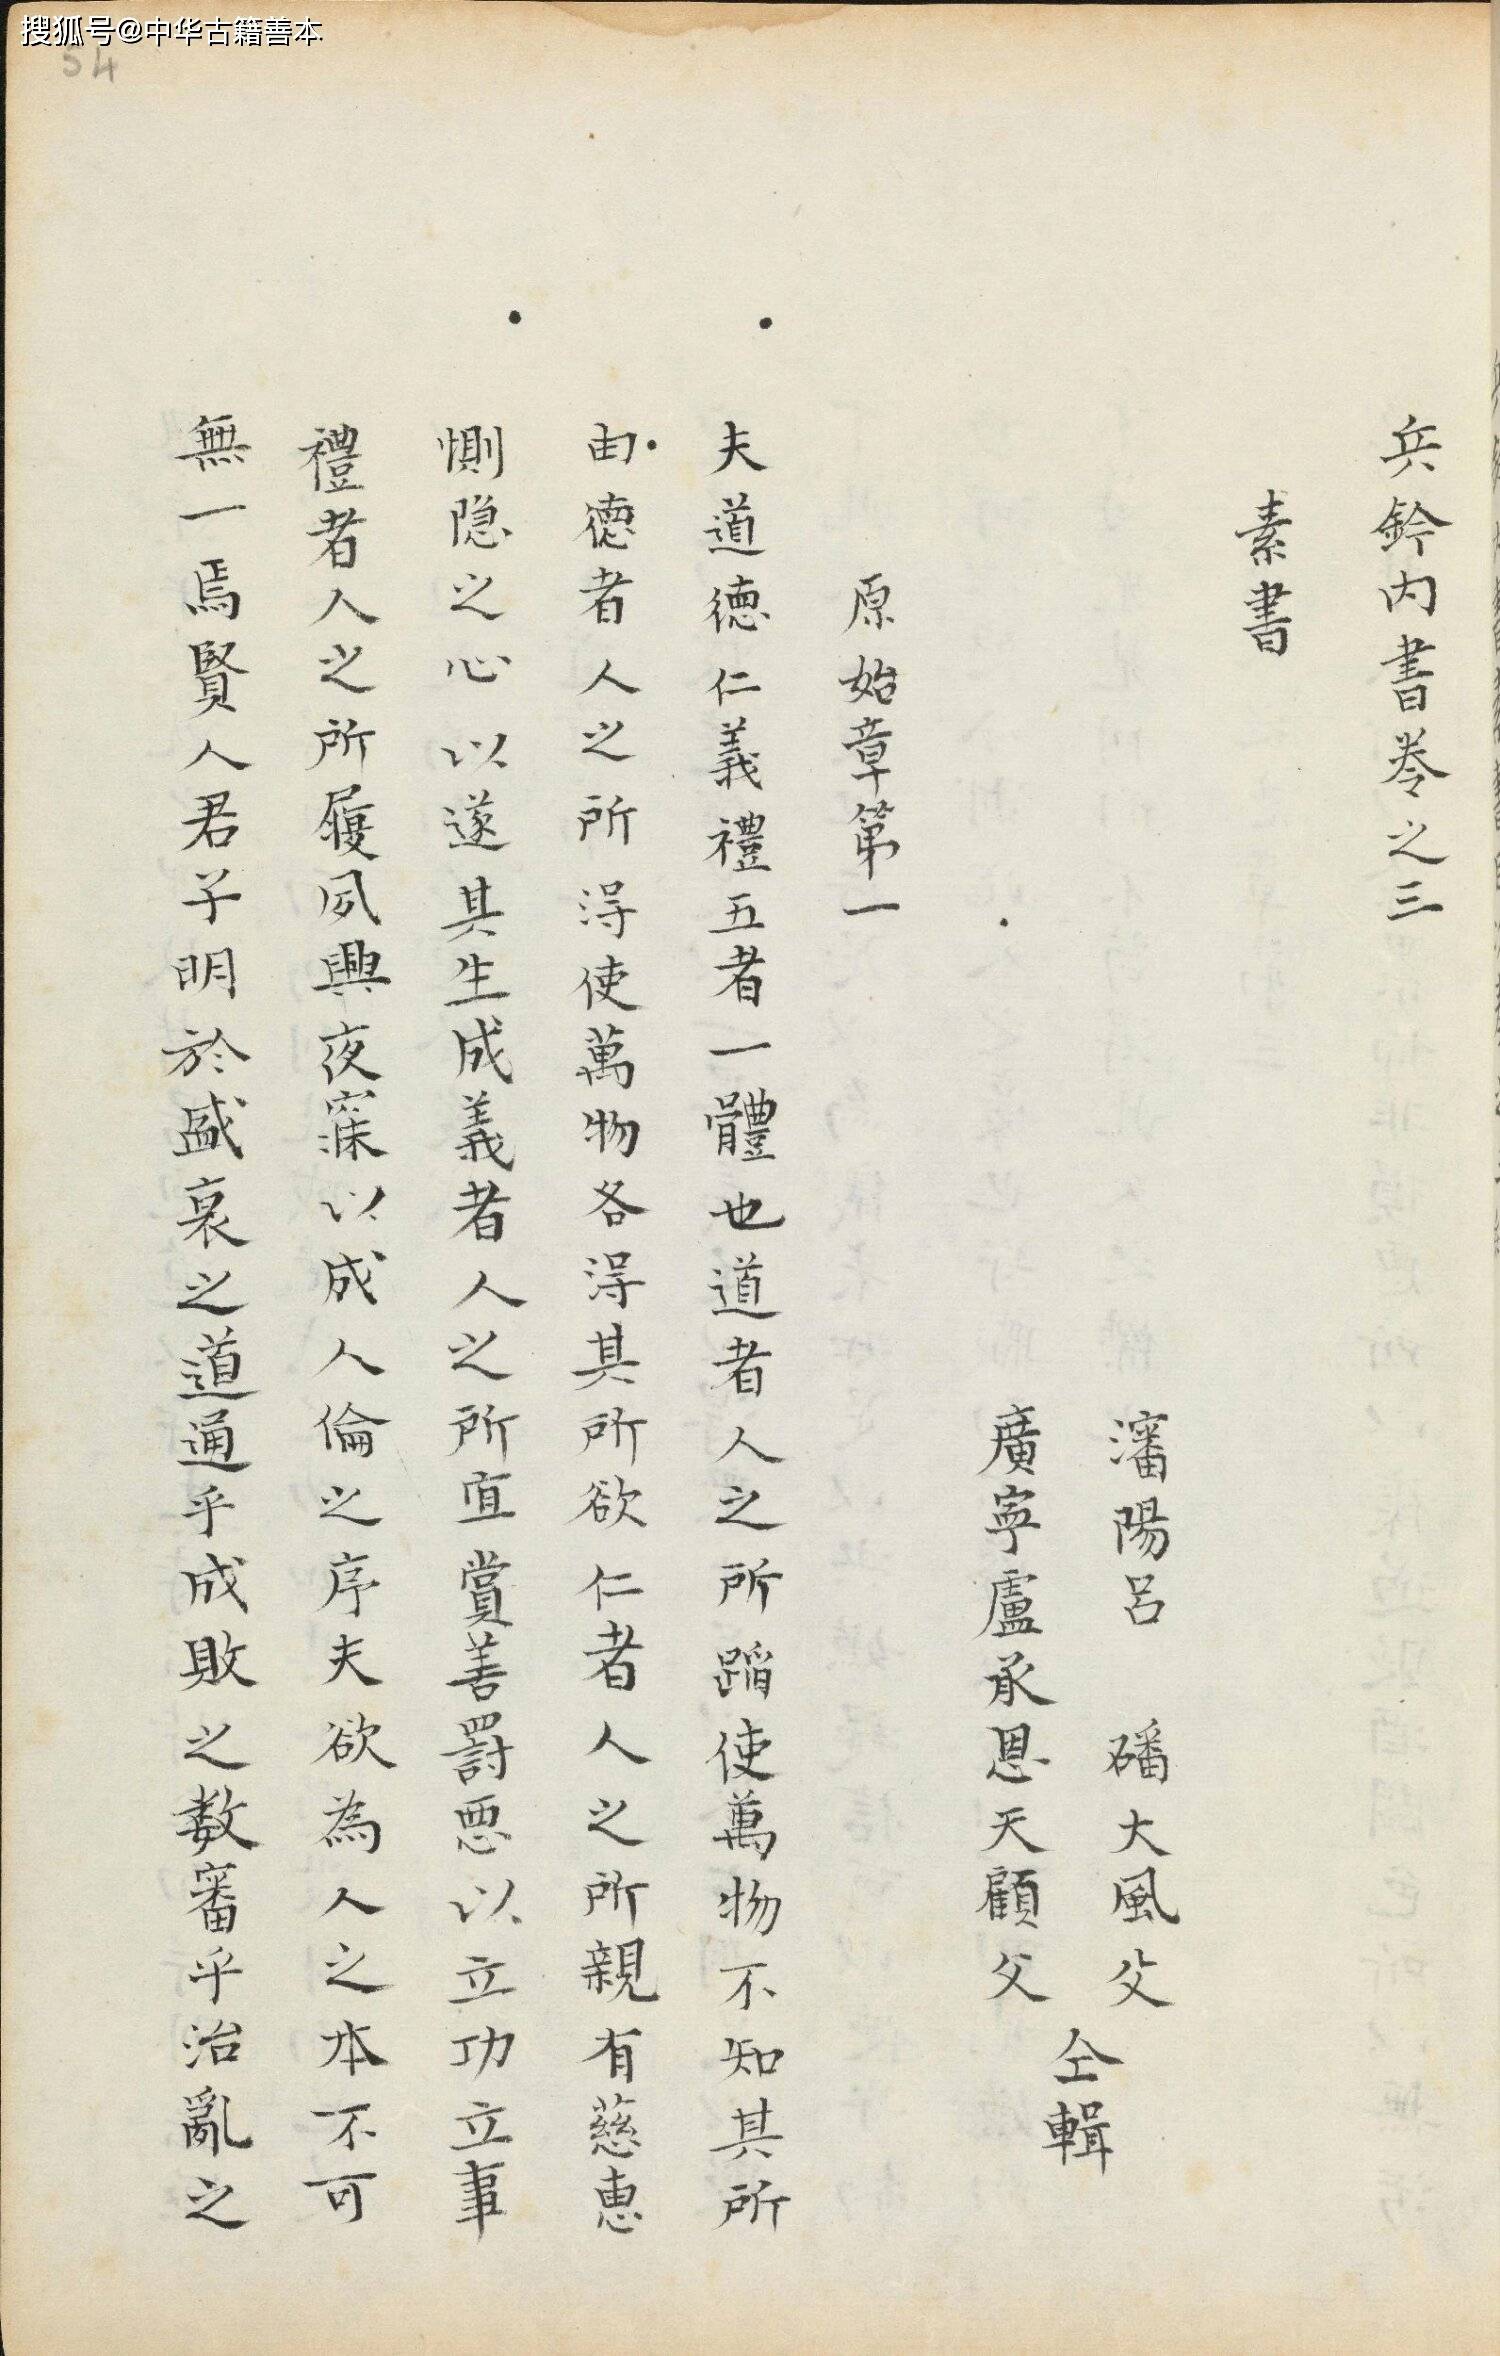 搜狐号@中华古籍善本
54
兵鈐内書卷之三
素書
瀋陽呂 磻大風父
廣寧盧承恩天顧父
仝輯
原始章第一
夫道德仁義禮五者一體也道者人之所蹈使萬物不知其所
由德者人之所得使萬物各得其所欲仁者人之所親有慈惠
惻隐之心以遂其生成義者人之所宜賞善罰惡以立功立事
禮者人之所履夙興夜寐以成人倫之序夫欲為人之本不可
無一焉賢人君子明於盛衰之道通乎成敗之数審乎治亂之